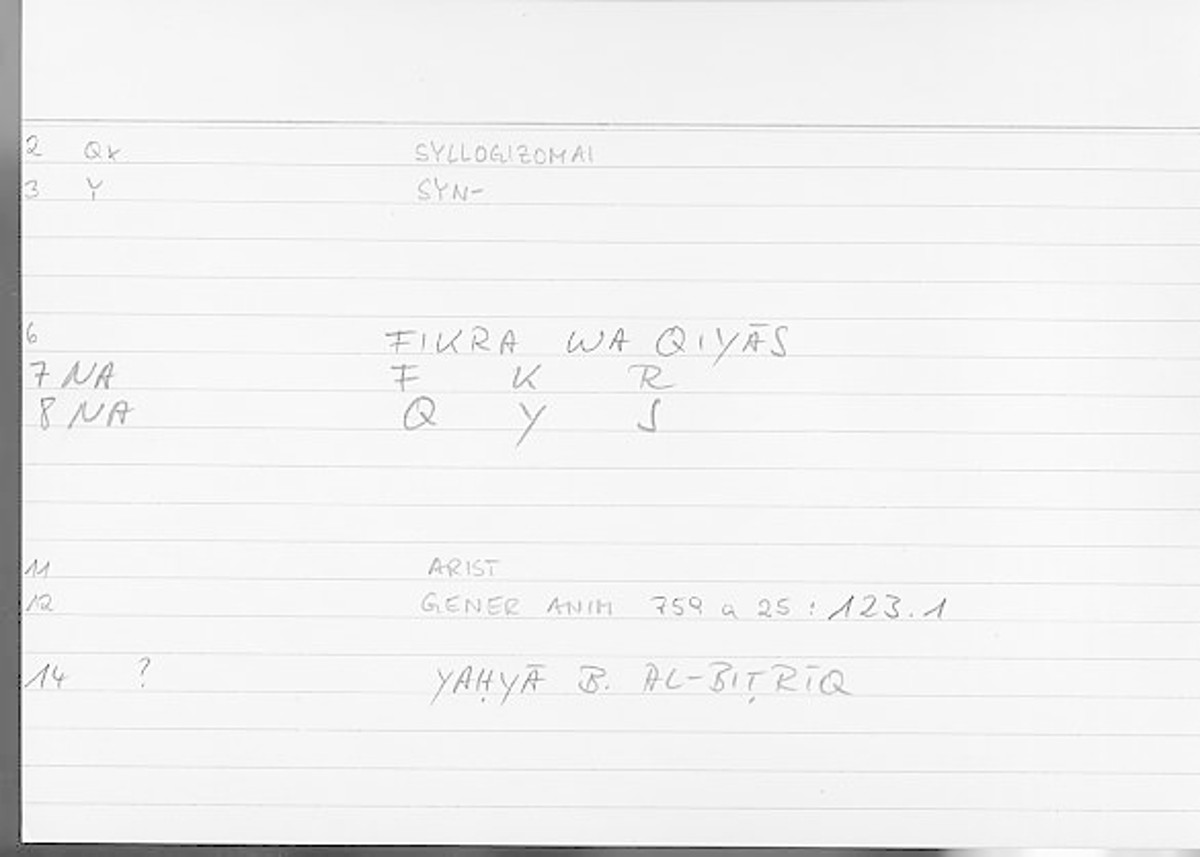 2 Qk SYLLOGIZOMAI
3 Y SYN-
6 FIKRA WA QIYĀS
7 NA F K R
8 NA Q Y S
11 ARIST
12 GENER ANIM 759 a 25 : 123.1
14 ? YAḤYĀ B. AL-BIṬRĪQ